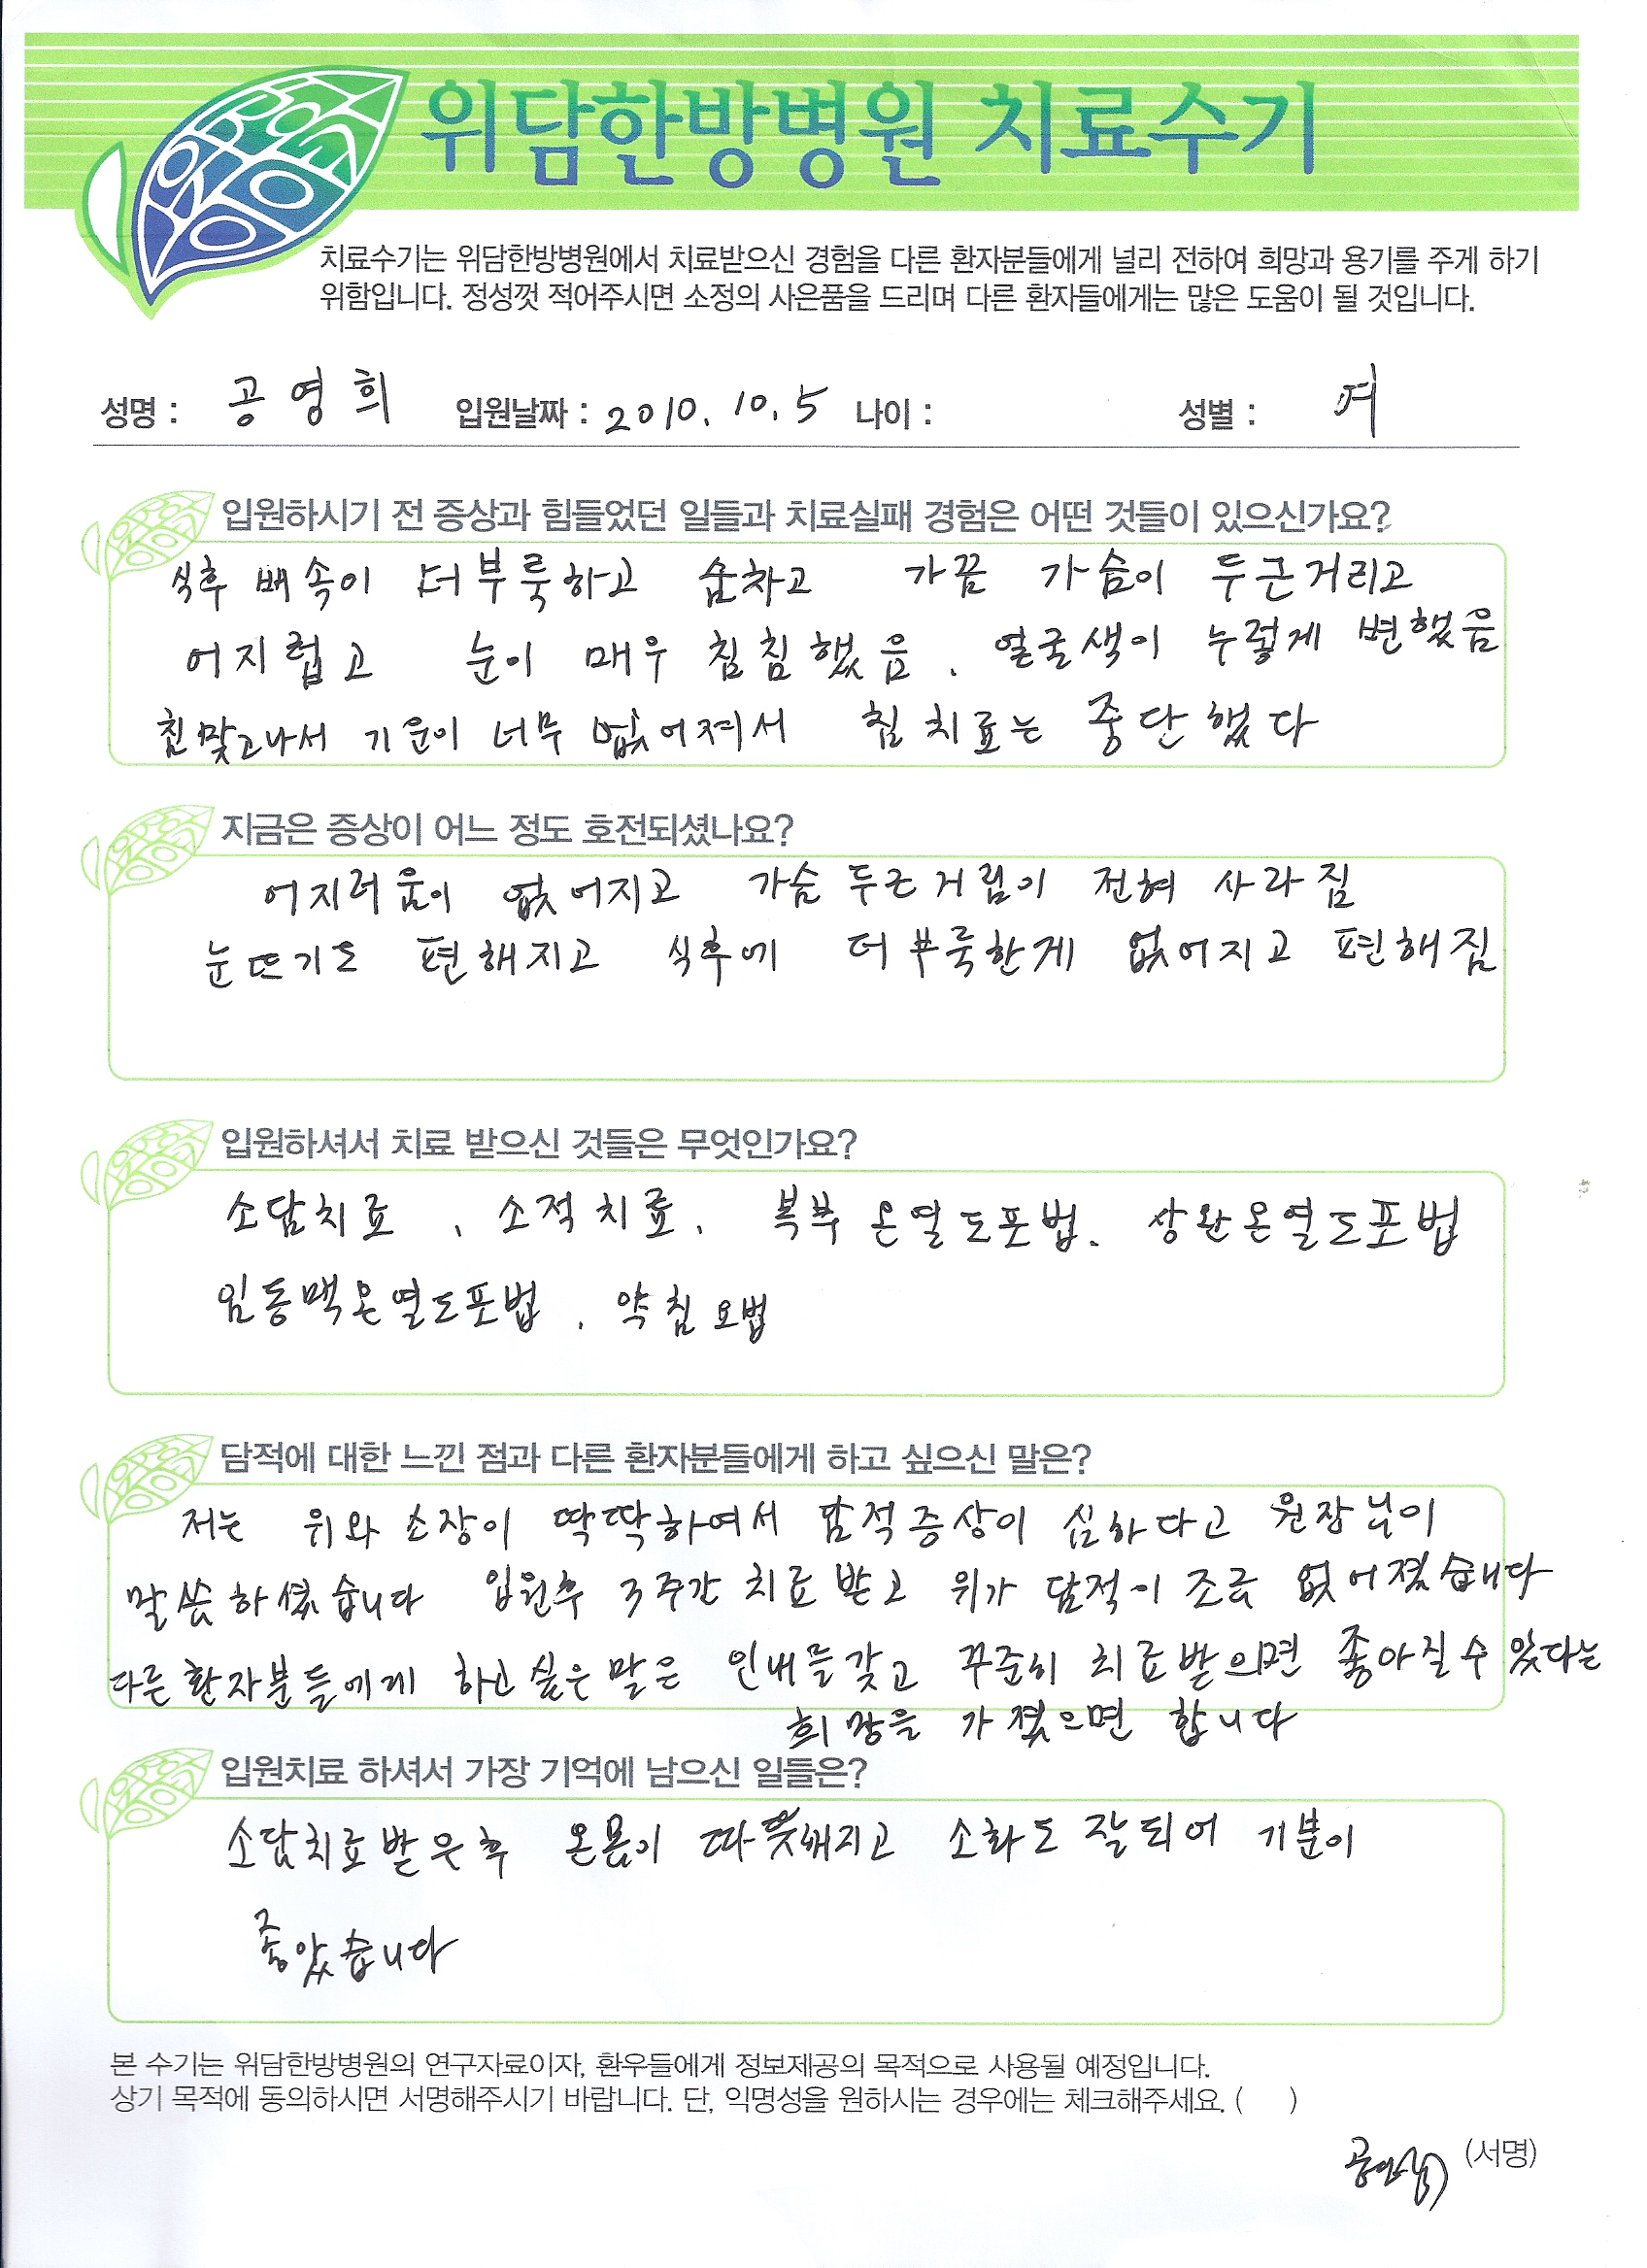 위담한방병원 치료수기
치료수기는 위담한방병원에서 치료받으신 경험을 다른 환자분들에게 널리 전하여 희망과 용기를 주게 하기
위함입니다. 정성껏 적어주시면 소정의 사은품을 드리며 다른 환자들에게는 많은 도움이 될 것입니다.
성명 : 공영희 입원날짜 : 2010. 10. 5 나이 : 성별 : 여
입원하시기 전 증상과 힘들었던 일들과 치료실패 경험은 어떤 것들이 있으신가요?
식후 배속이 더부룩하고 숨차고 가끔 가슴이 두근거리고
어지럽고 눈이 매우 침침했음. 얼굴색이 누렇게 변했음
침맞고나서 기운이 너무 없어져서 침치료는 중단했다
지금은 증상이 어느 정도 호전되셨나요?
어지러움이 없어지고 가슴 두근거림이 전혀 사라짐
눈뜨기도 편해지고 식후에 더부룩한게 없어지고 편해짐
입원하셔서 치료 받으신 것들은 무엇인가요?
소담치료, 소적치료, 복부 온열도포법. 상완온열도포법
임동맥온열도포법, 약침요법
담적에 대한 느낀 점과 다른 환자분들에게 하고 싶으신 말은?
저는 위와 소장이 딱딱하여서 담적증상이 심하다고 원장님이
말씀하셨습니다 입원후 3주간 치료받고 위가 담적이 조금 없어졌습니다
다른환자분들에게 하고싶은 말은 인내를갖고 꾸준히 치료받으면 좋아질수 있다는
희망을 가졌으면 합니다
입원치료 하셔서 가장 기억에 남으신 일들은?
소담치료받은후 온몸이 따뜻해지고 소화도 잘되어 기분이
좋았습니다
본 수기는 위담한방병원의 연구자료이자, 환우들에게 정보제공의 목적으로 사용될 예정입니다.
상기 목적에 동의하시면 서명해주시기 바랍니다. 단, 익명성을 원하시는 경우에는 체크해주세요. ( )
(서명)